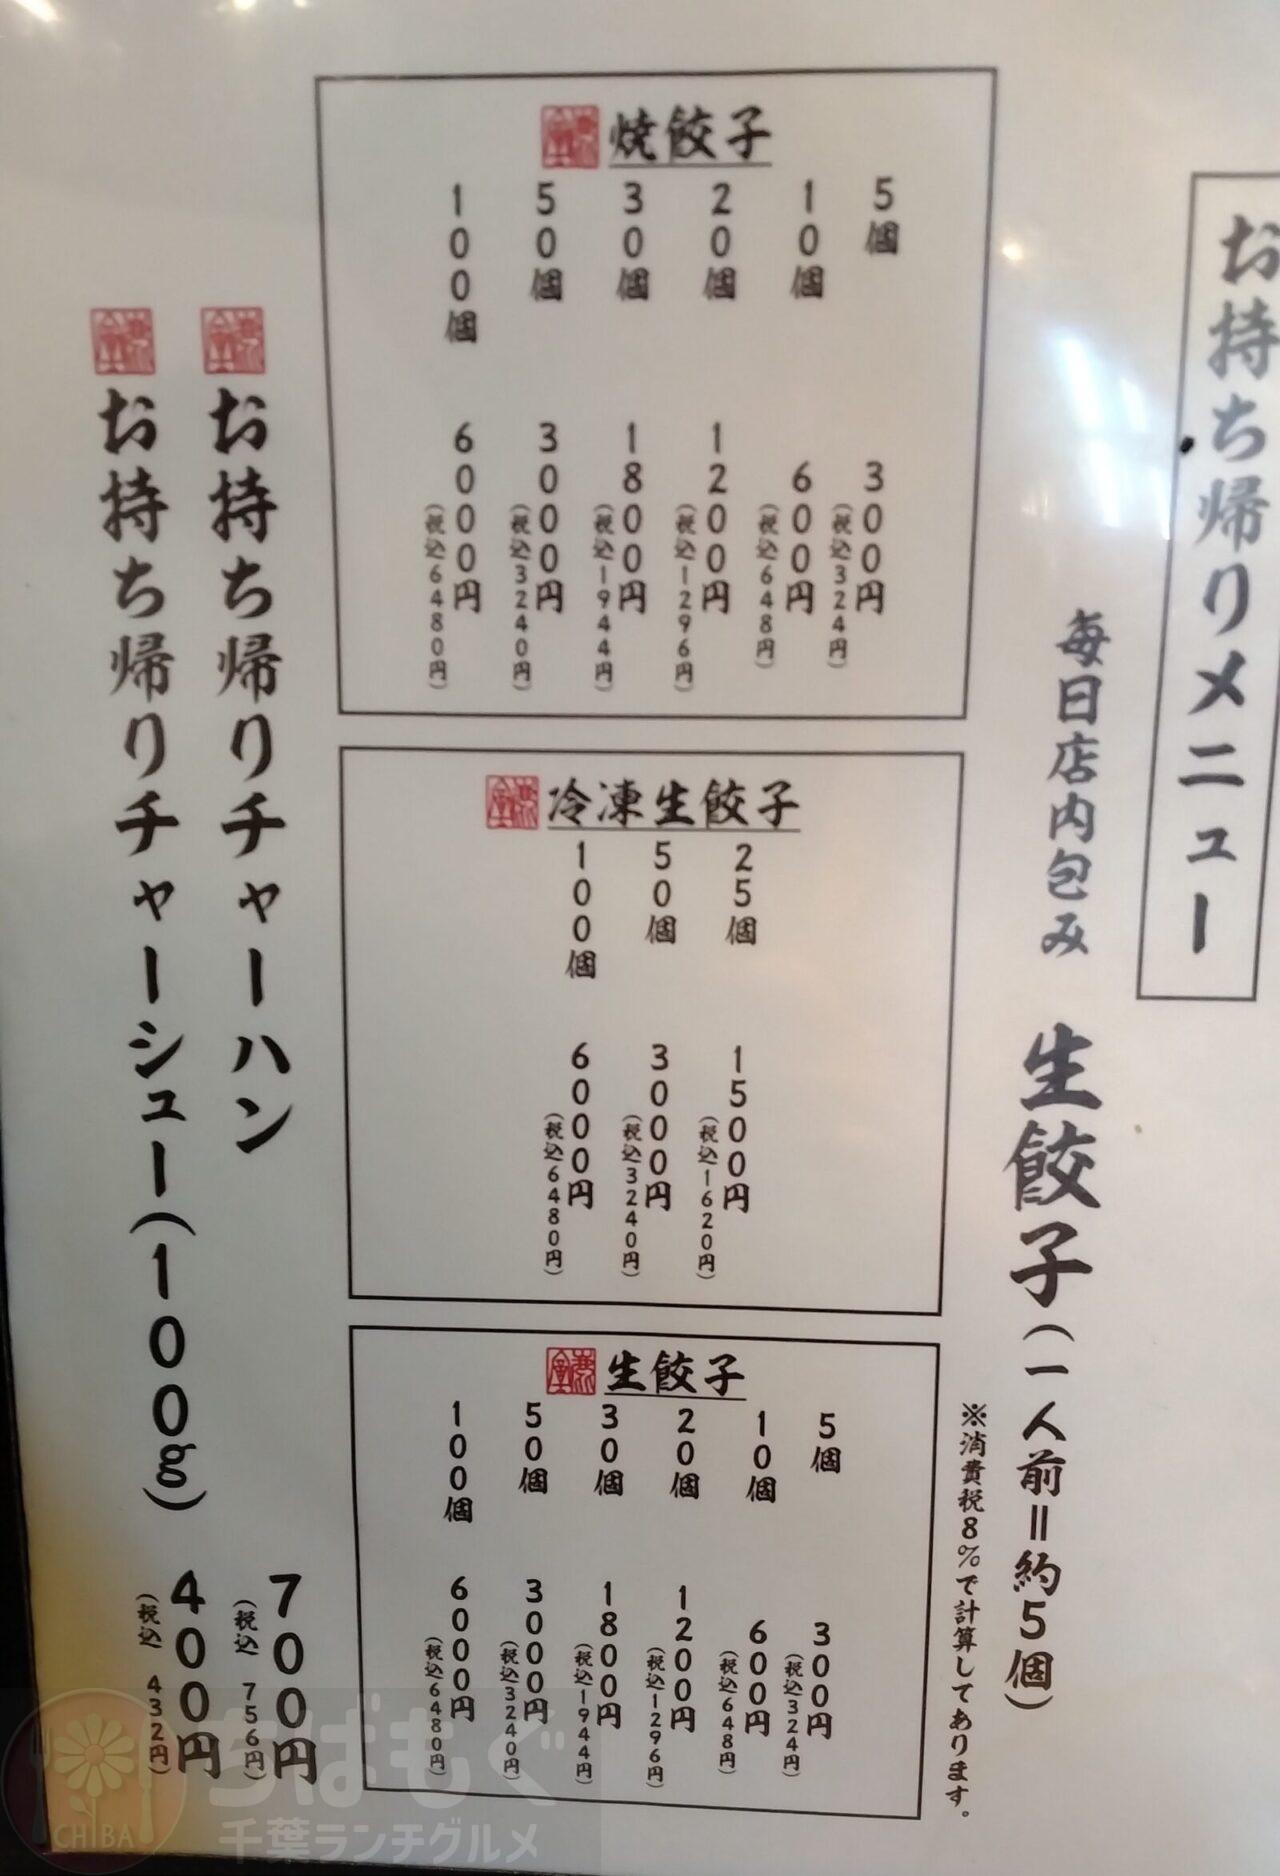 お持ち帰りメニュー
毎日店内包み 生餃子(一人前=約5個)
※消費税8%で計算してあります。
焼餃子
5個 300円(税込324円)
10個 600円(税込648円)
20個 1200円(税込1296円)
30個 1800円(税込1944円)
50個 3000円(税込3240円)
100個 6000円(税込6480円)
冷凍生餃子
25個 1500円(税込1620円)
50個 3000円(税込3240円)
100個 6000円(税込6480円)
生餃子
5個 300円(税込324円)
10個 600円(税込648円)
20個 1200円(税込1296円)
30個 1800円(税込1944円)
50個 3000円(税込3240円)
100個 6000円(税込6480円)
お持ち帰りチャーハン 700円(税込 756円)
お持ち帰りチャーシュー(100g) 400円(税込 432円)
ちばもぐ
千葉ランチグルメ
CHIBA